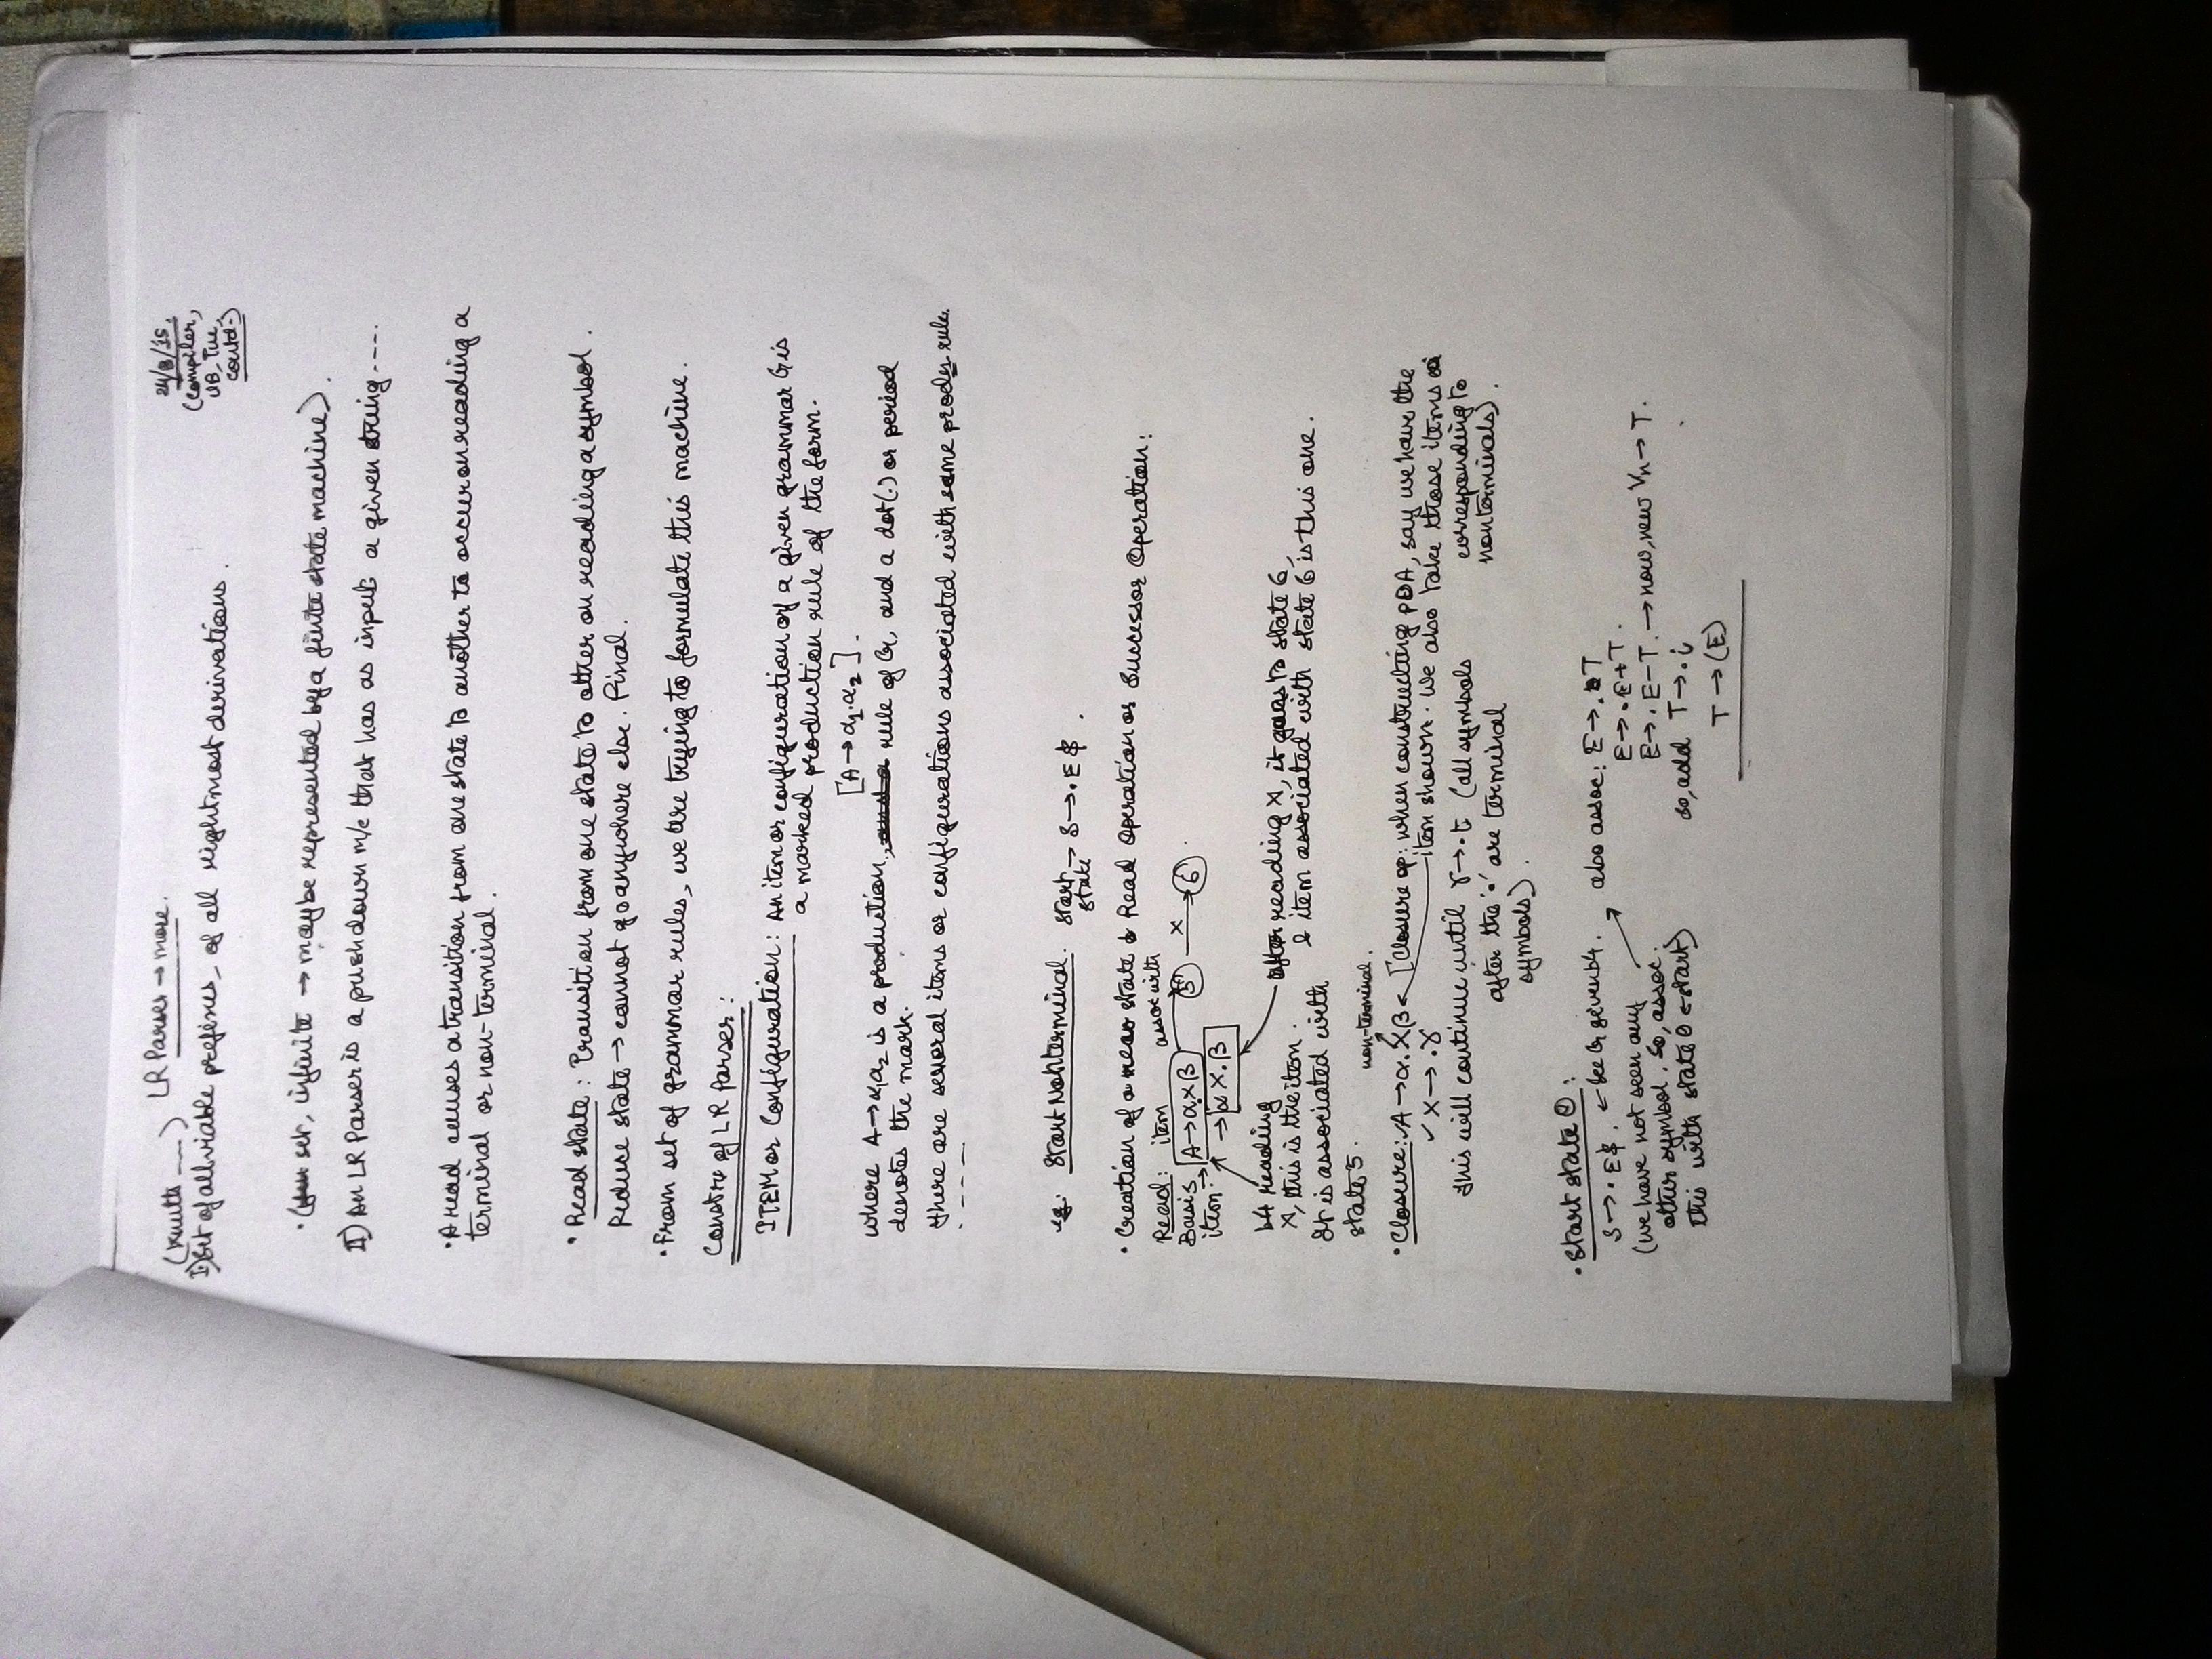 LR Parser → more.
(Knuth's ---)
24/8/'15.
(Compiler,
IB, Tue,
contd.)
I) Set of all viable prefixes, of all rightmost derivations.
• ( set, infinite → may be represented by a finite state machine).
II) An LR Parser is a pushdown m/c that has as input a given string ----.
• A read causes a transition from one state to another to occur on reading a
terminal or non-terminal.
• Read state: Transition from one state to other on reading a symbol.
Reduce state → cannot go anywhere else. Final.
• From set of grammar rules, we are trying to formulate this machine.
Constrn of LR Parser:
ITEM or Configuration: An item or configuration of a given grammar G is
a marked production rule of the form.
[A → α1.α2].
where A → α1α2 is a production, rule of G, and a dot(.) or period
denotes the mark.
There are several items or configurations associated with same prodcn rule.
- - - - -
eg. Start Nonterminal. Start state → S → .E$.
• Creation of a new state & Read Operation or Successor Operation:
Read: item assoc with
Basis item: → A → α.Xβ 5 X → 6.
→ αX.β
b4 reading
X, this is the item.
It is associated with
state 5.
after reading X, it goes to state 6,
& item associated with state 6 is this one.
non-terminal.
• Closure: ✓ A → α.Xβ ← [Closure op: when constructing PDA, say we have the
✓ X → .γ item shown. We also take those items
corresponding to
nonterminals).
This will continue until γ → .t (all symbols
after the '.' are terminal
symbols).
• Start state 0:
S → .E$. ← See G given b4.
(we have not seen any
other symbol. So, assoc.
this with state 0 ← start)
also assoc: E → .T
E → .E+T.
E → .E-T. → now, new Vn → T.
so, add T → .i
T → (E)